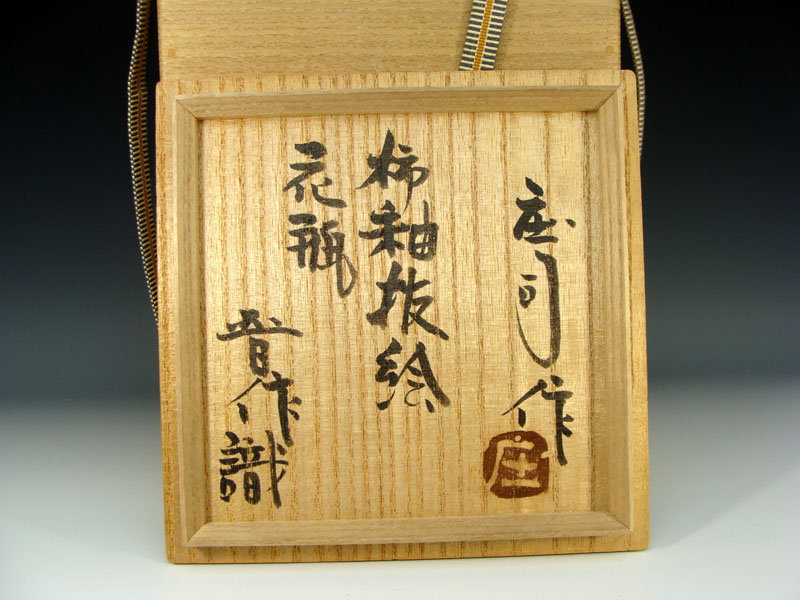 庄司作
庄
柿釉抜絵
花瓶
晋作識